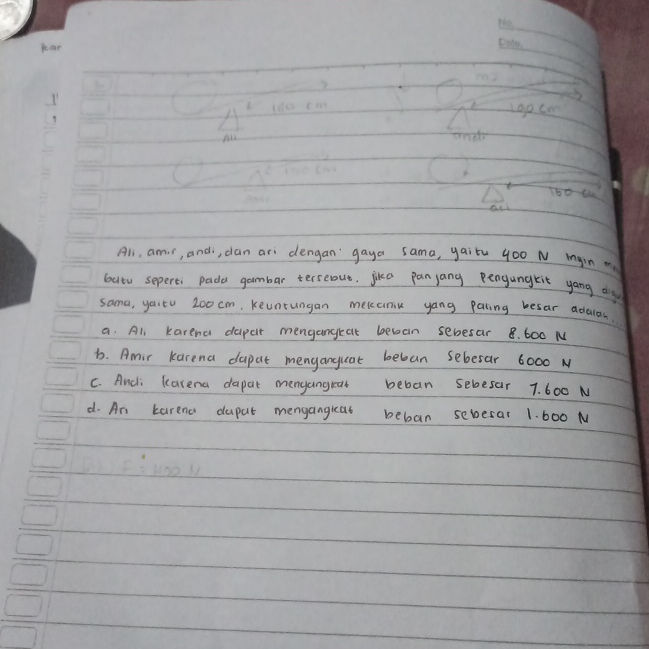 No.
Date.
180 cm
Ali
190 cm
andi
160 cm
ari
Ali, amir, andi, dan ari dengan gaya sama, yaitu 400 N ingin
batu seperti pada gambar tersebut. jika panjang pengungkit yang
sama, yaitu 200 cm. keuntungan mekanik yang paling besar adalah...
a. Ali karena dapat mengangkat beban sebesar 8.600 N
b. Amir karena dapat mengangkat beban sebesar 6000 N
c. Andi karena dapat mengangkat beban sebesar 7.600 N
d. Ari karena dapat mengangkat beban sebesar 1.600 N
F = 400 N